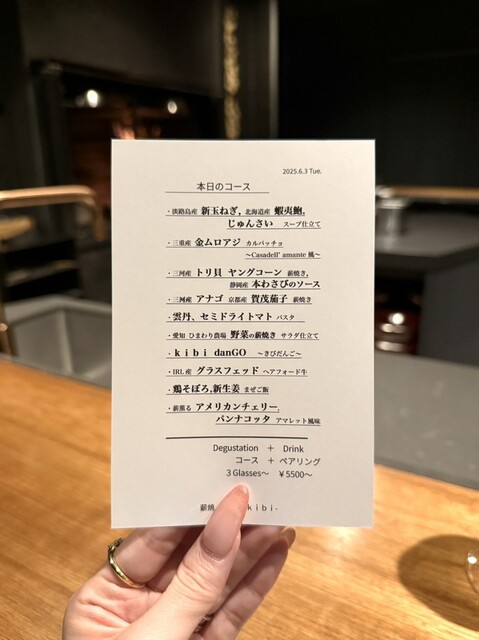 2025.6.3 Tue.
本日のコース
・淡路島産 新玉ねぎ, 北海道産 蝦夷鮑,
じゅんさい スープ仕立て
・三重産 金ムロアジ カルパッチョ
～Casadell' amante 風～
・三河産 トリ貝 ヤングコーン 薪焼き,
静岡産 本わさびのソース
・三河産 アナゴ 京都産 賀茂茄子 薪焼き
・雲丹、セミドライトマト パスタ
・愛知 ひまわり農場 野菜の薪焼き サラダ仕立て
・kibi danGO ～きびだんご～
・IRL産 グラスフェッド ヘアフォード牛
・鶏そぼろ,新生姜 まぜご飯
・薪薫る アメリカンチェリー,
パンナコッタ アマレット風味
Degustation + Drink
コース + ペアリング
3 Glasses～ ¥5500～
薪焼 kibi-